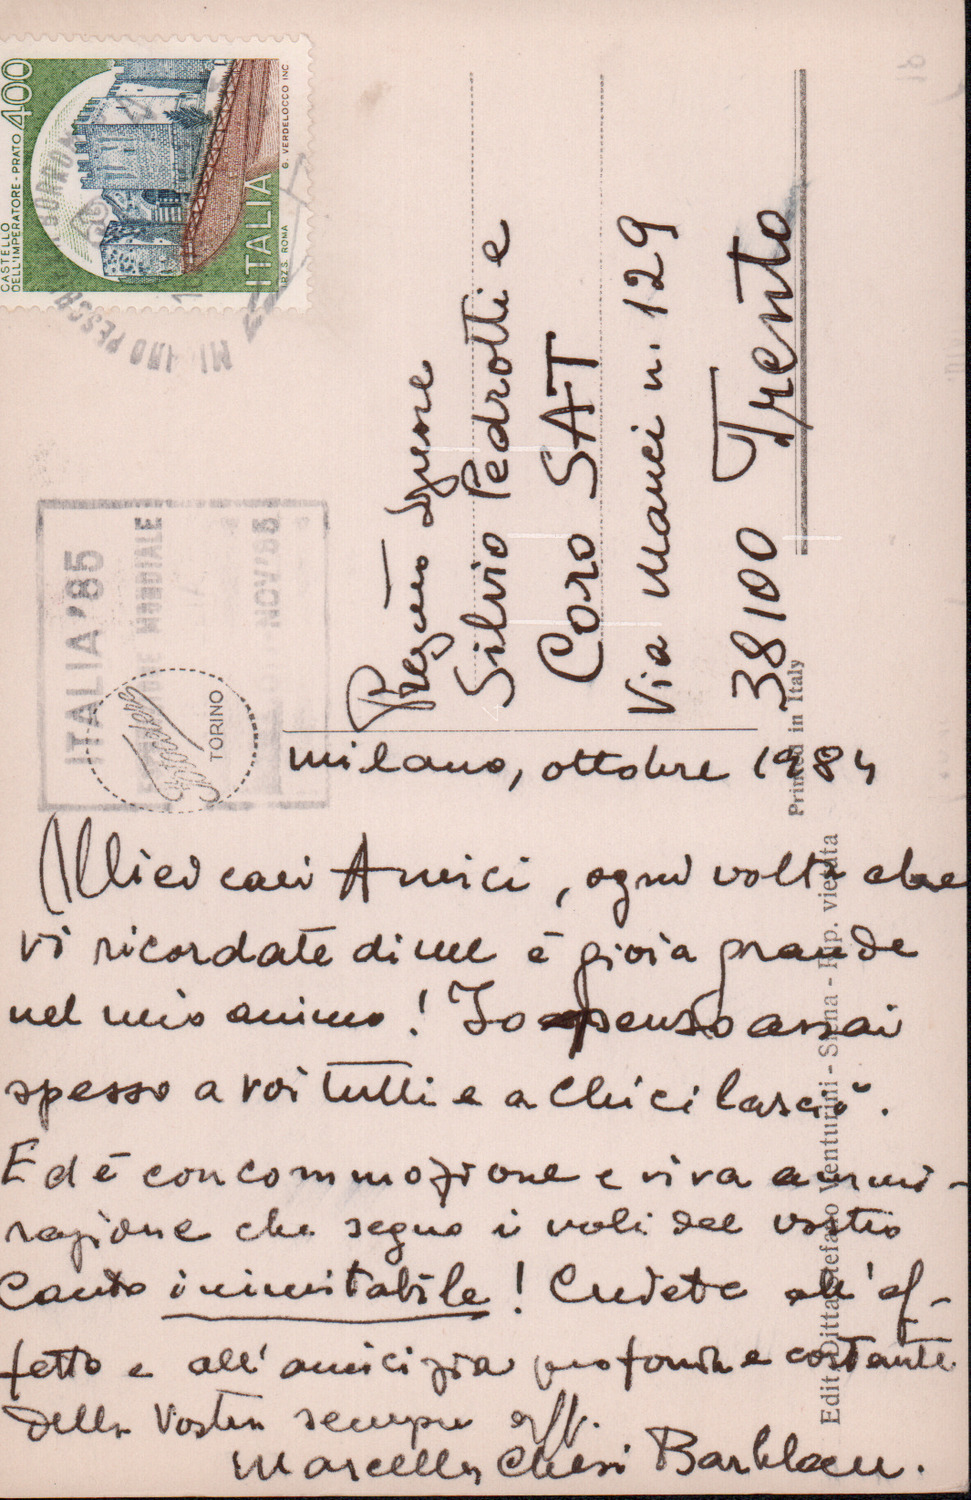 CASTELLO
DELL'IMPERATORE - PRATO
400
ITALIA
I.P.Z.S. ROMA
G. VERDELOCCO INC
MILANO
ITALIA '85
MONDIALE
NOV '85
TORINO
Silvio Pedrotti e
Coro SAT
Via Manci n. 129
38100 Trento
Printed in Italy
Edit. Ditta Stefano Venturini - Siena - Rip. vietata
milano, ottobre 1984
Miei cari Amici, ogni volta che
vi ricordate di me è gioia grande
nel mio animo! Io penso assai
spesso a voi tutti e a chi ci lasciò.
Ed è con commozione e viva ammi-
razione che seguo i voli del vostro
Canto inimitabile! Credete all'af-
fetto e all'amicizia profonda e costante
della Vostra sempre aff.
Marcella Chesi Barblan.